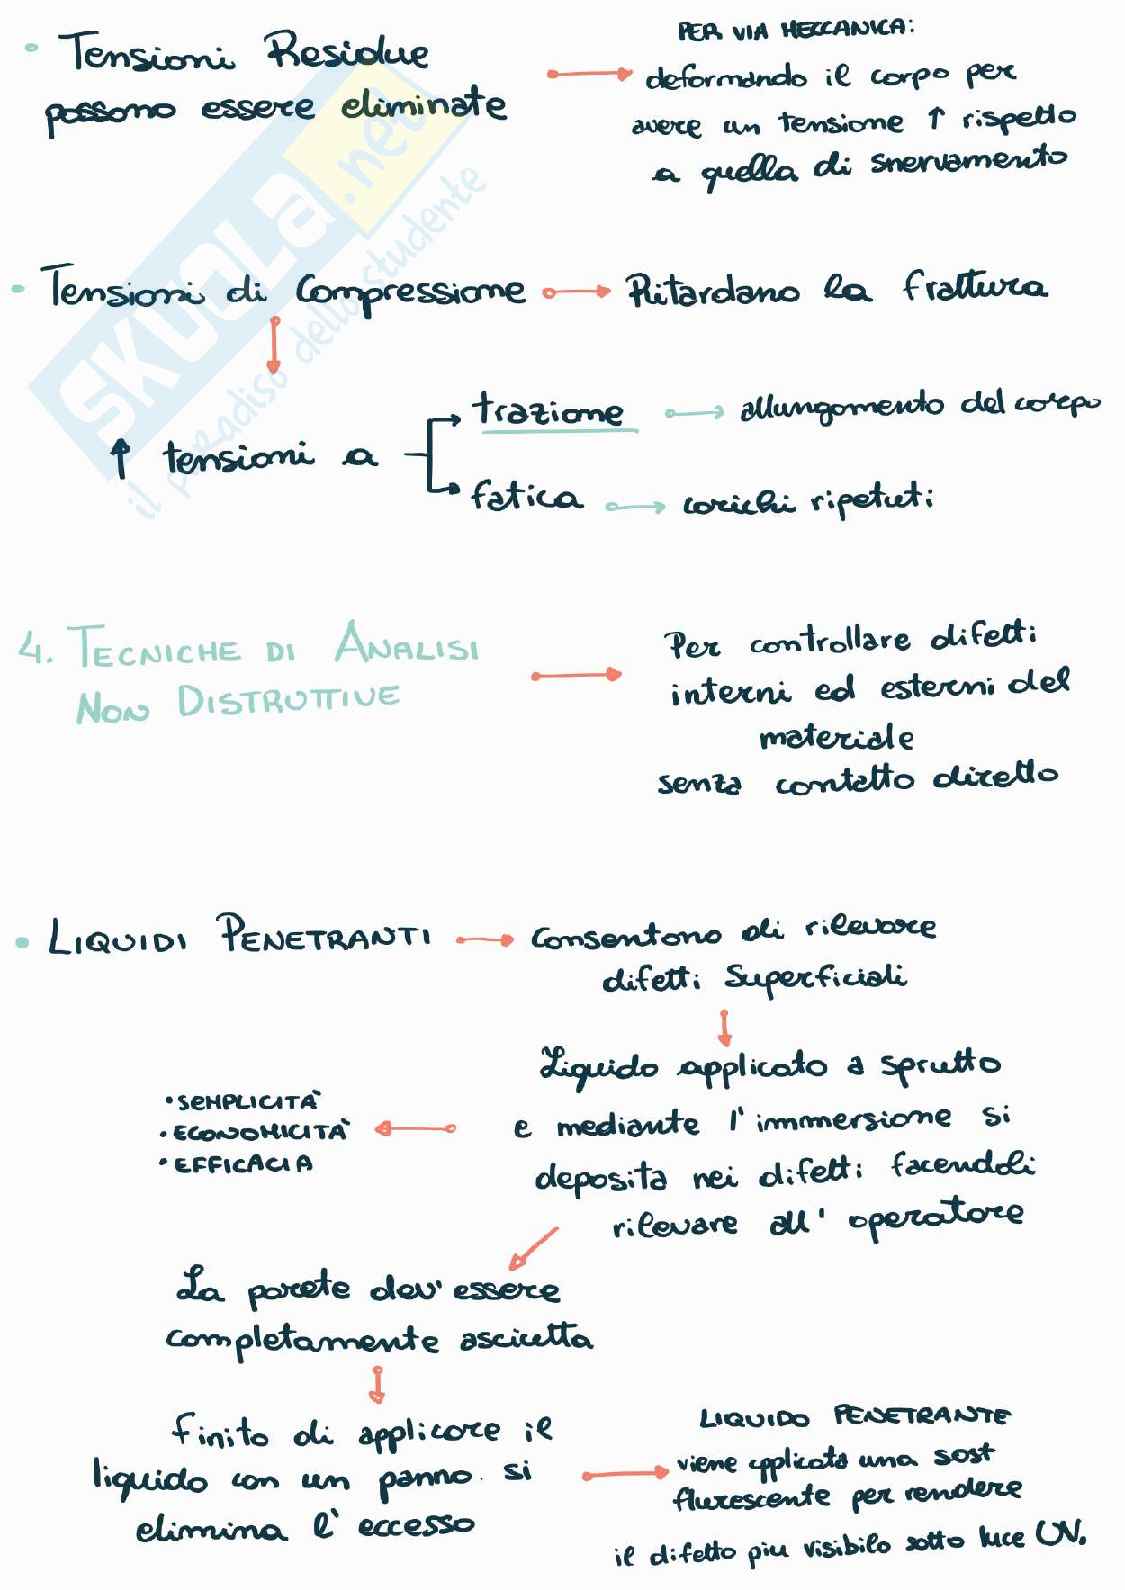 • Tensioni Residue
possono essere eliminate
PER VIA MECCANICA:
deformando il corpo per
avere un tensione ↑ rispetto
a quella di snervamento
• Tensioni di Compressione → Ritardano la frattura
↑ tensioni a
trazione → allungamento del corpo
fatica → carichi ripetuti
4. TECNICHE DI ANALISI
NON DISTRUTTIVE
Per controllare difetti
interni ed esterni del
materiale
senza contatto diretto
• LIQUIDI PENETRANTI → Consentono di rilevare
difetti Superficiali
Liquido applicato a sprutto
e mediante l'immersione si
deposita nei difetti facendoli
rilevare all' operatore
• SEMPLICITÀ
• ECONOMICITÀ
• EFFICACIA
La parete dev'essere
completamente asciutta
Finito di applicare il
liquido con un panno si
elimina l'eccesso
LIQUIDO PENETRANTE
viene applicata una sost
flurescente per rendere
il difetto piu visibilo sotto luce UV.
SKUOLA.net
il paradiso dello studente